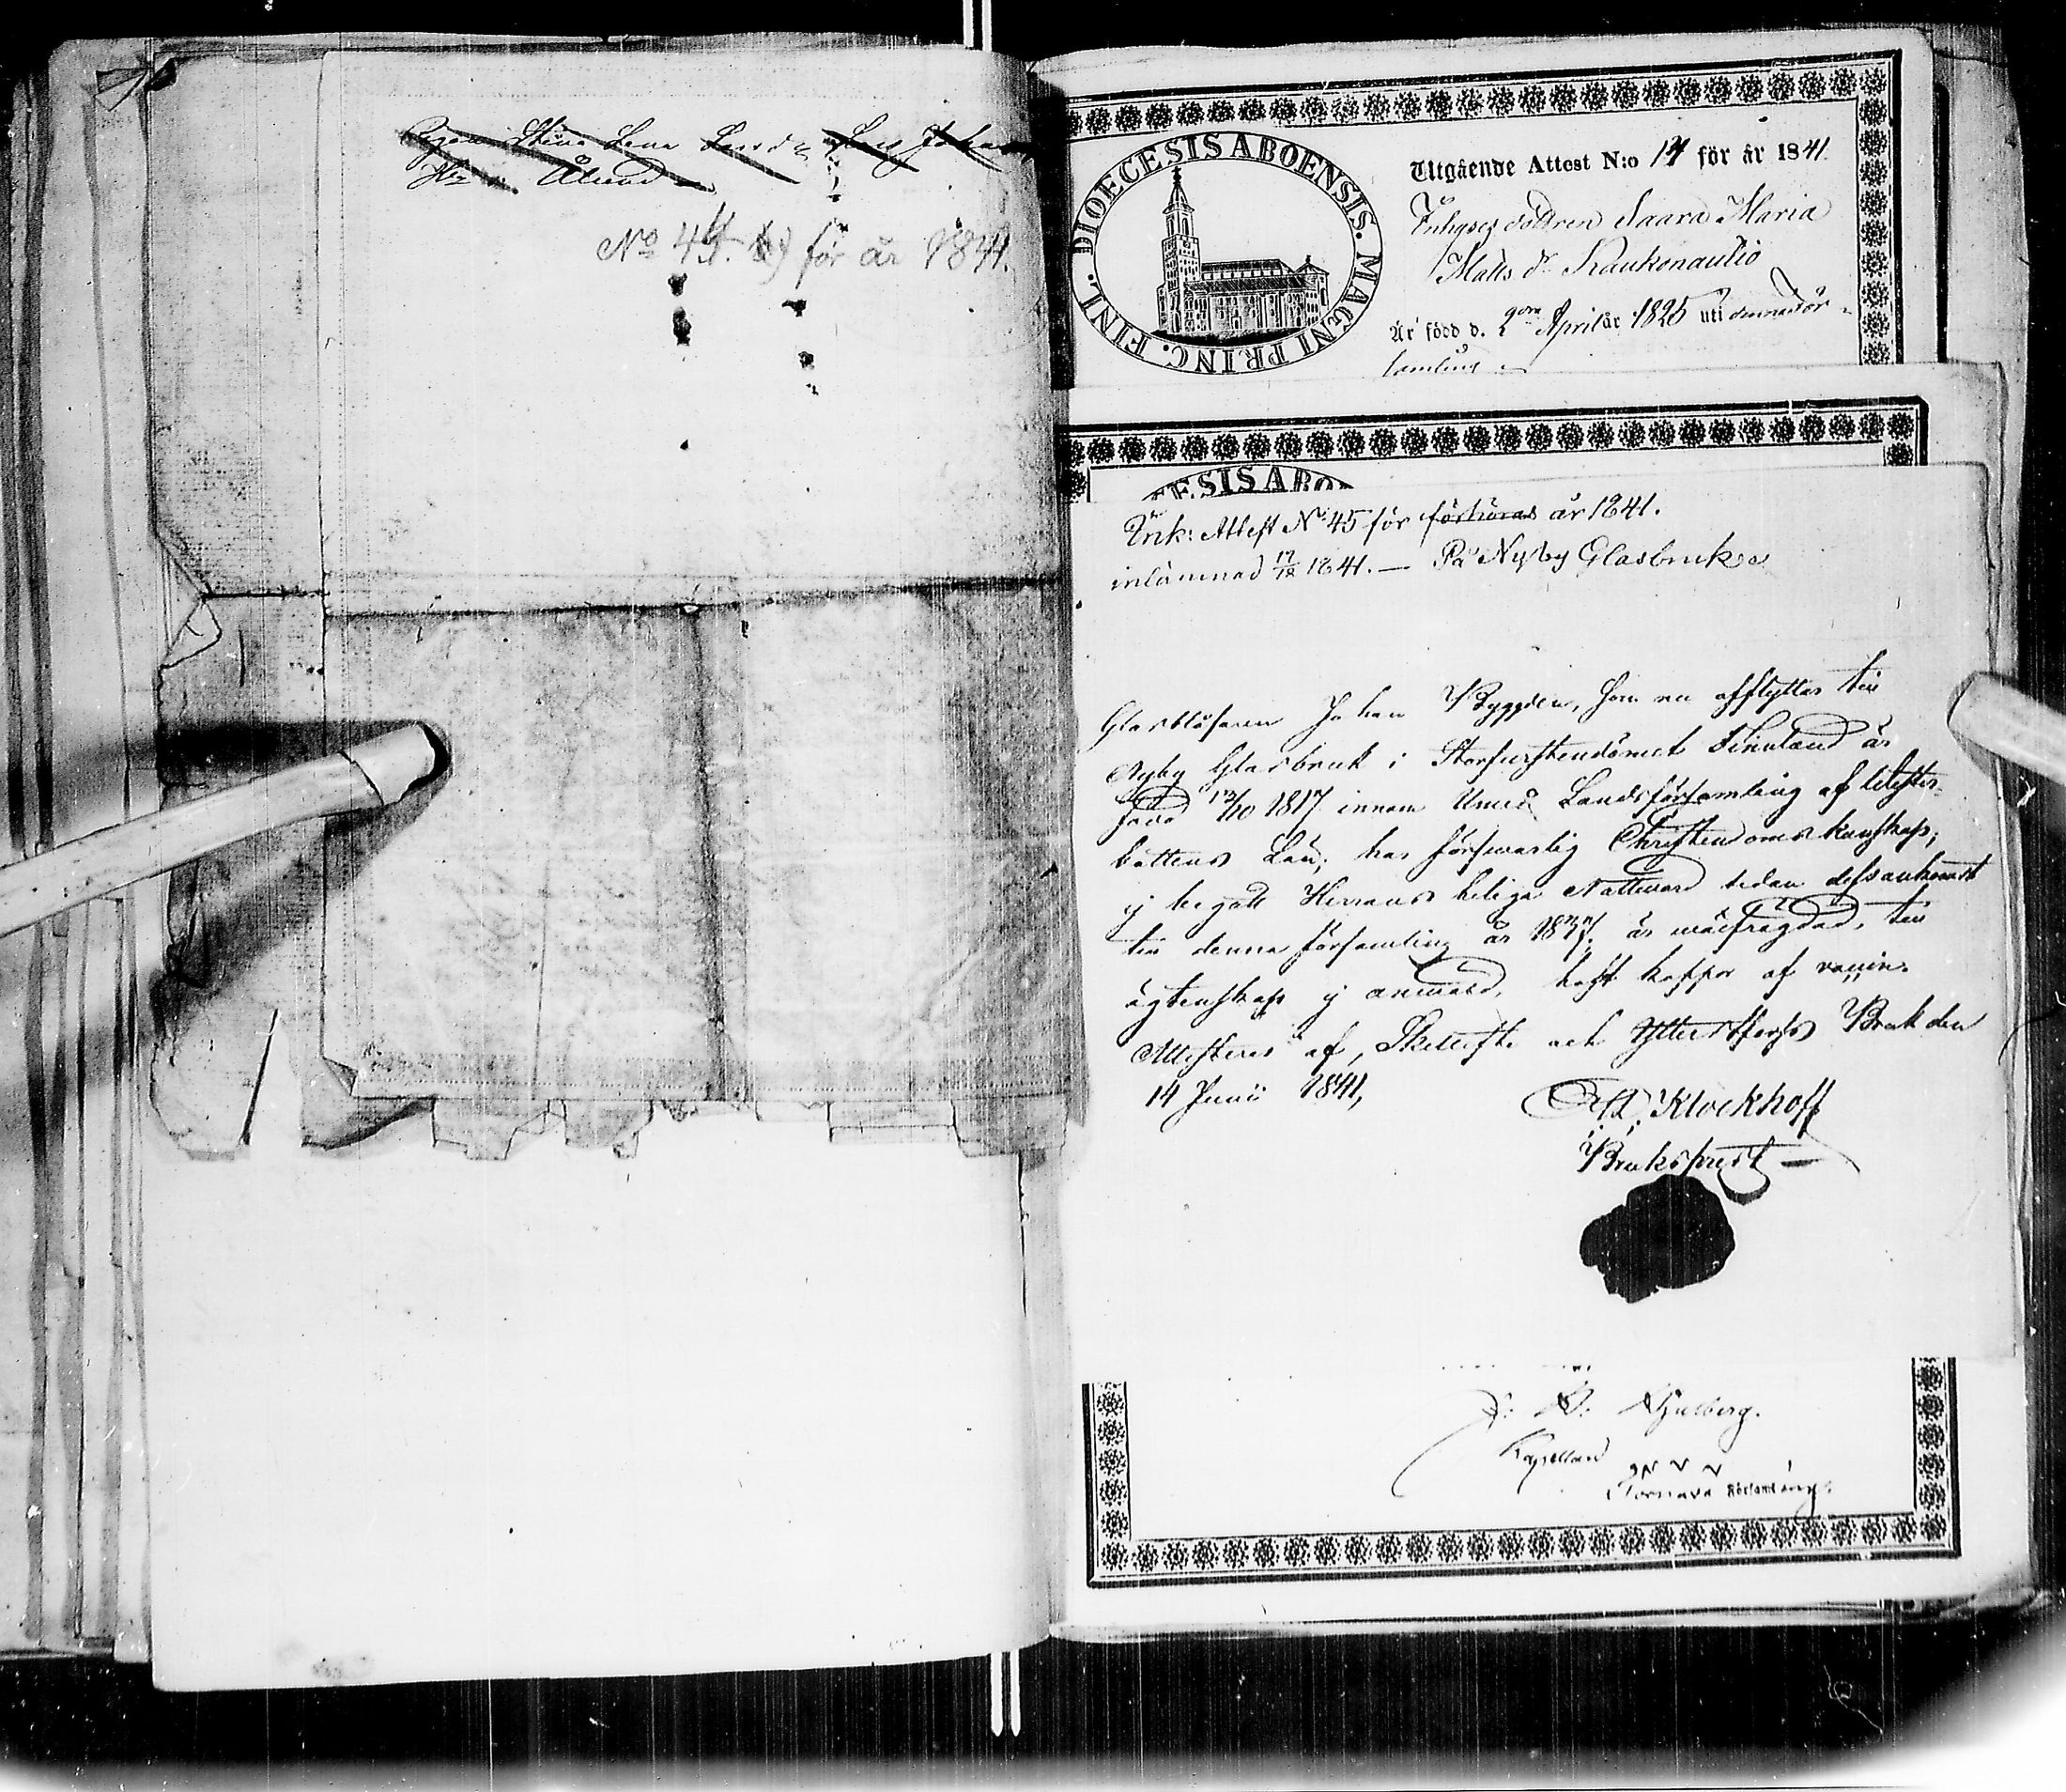 Stina Lena
Ålund
No 44. för år 1841.
DIOECESIS ABOENSIS. MAGNI PRINC. FINL.
Utgående Attest N:o 14 för år 1841.
Inhyses dottren Saara Maria
Matts dr Kaukonautio
Är född d. 2dra April år 1825 uti denna för-
samling
ESIS ABO
Ink: Attest No 45 för förhöras år 1841.
inlämnad 17/12 1841. — På Nyby Glasbruk
Glasblåsaren Johan Byggdén, som nu afflyttar till
Nyby Glasbruk i Storfurstendömet Finnland är
född 12/10 1817 innom Umeå Landsförsamling af Wester-
bottens Län; har försvarlig Christendomskunskap;
ej begått Herrans heliga Nattvard sedan dess ankomst
till denna församling år 1837. är wälfrägdad, till
ägtenskap ej anmäld, haft koppor af vaccin.
Attesteras af, Skellefte och Ytterstfors Bruk den
14 Junii 1841,
Klockhoff
Brukspred:t
Hjulberg.
Kapellan
församling.